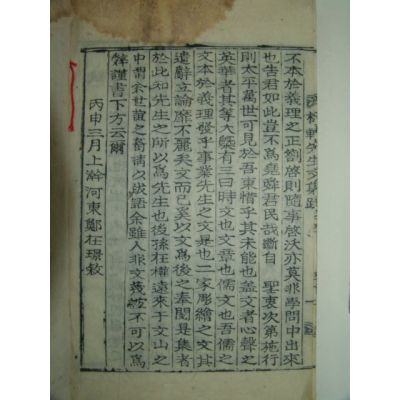 軒先生文集跋
不本於義理之正劄啓則隨事啓沃亦莫非學問中出來
也告君如此豈不爲堯舜君民哉斷自 聖衷次第施行
則太平萬世可見於吾東惜乎其未能也盖文者心聲之
英華者其等大槩有三曰時文也文章也儒文也吾儒之
文本於義理發乎事業先生之文是也二家彫繪之文其
遣辭立論靡不麗矣文而已奚以文爲後之奉閱是集者
於此知先生之以爲先生也後孫在權遠來于文山之
中謂余世誼之舊請以跋語余雖人非文蔑 不可以爲
辭謹書下方云爾
丙申三月上澣河東鄭在璟敘